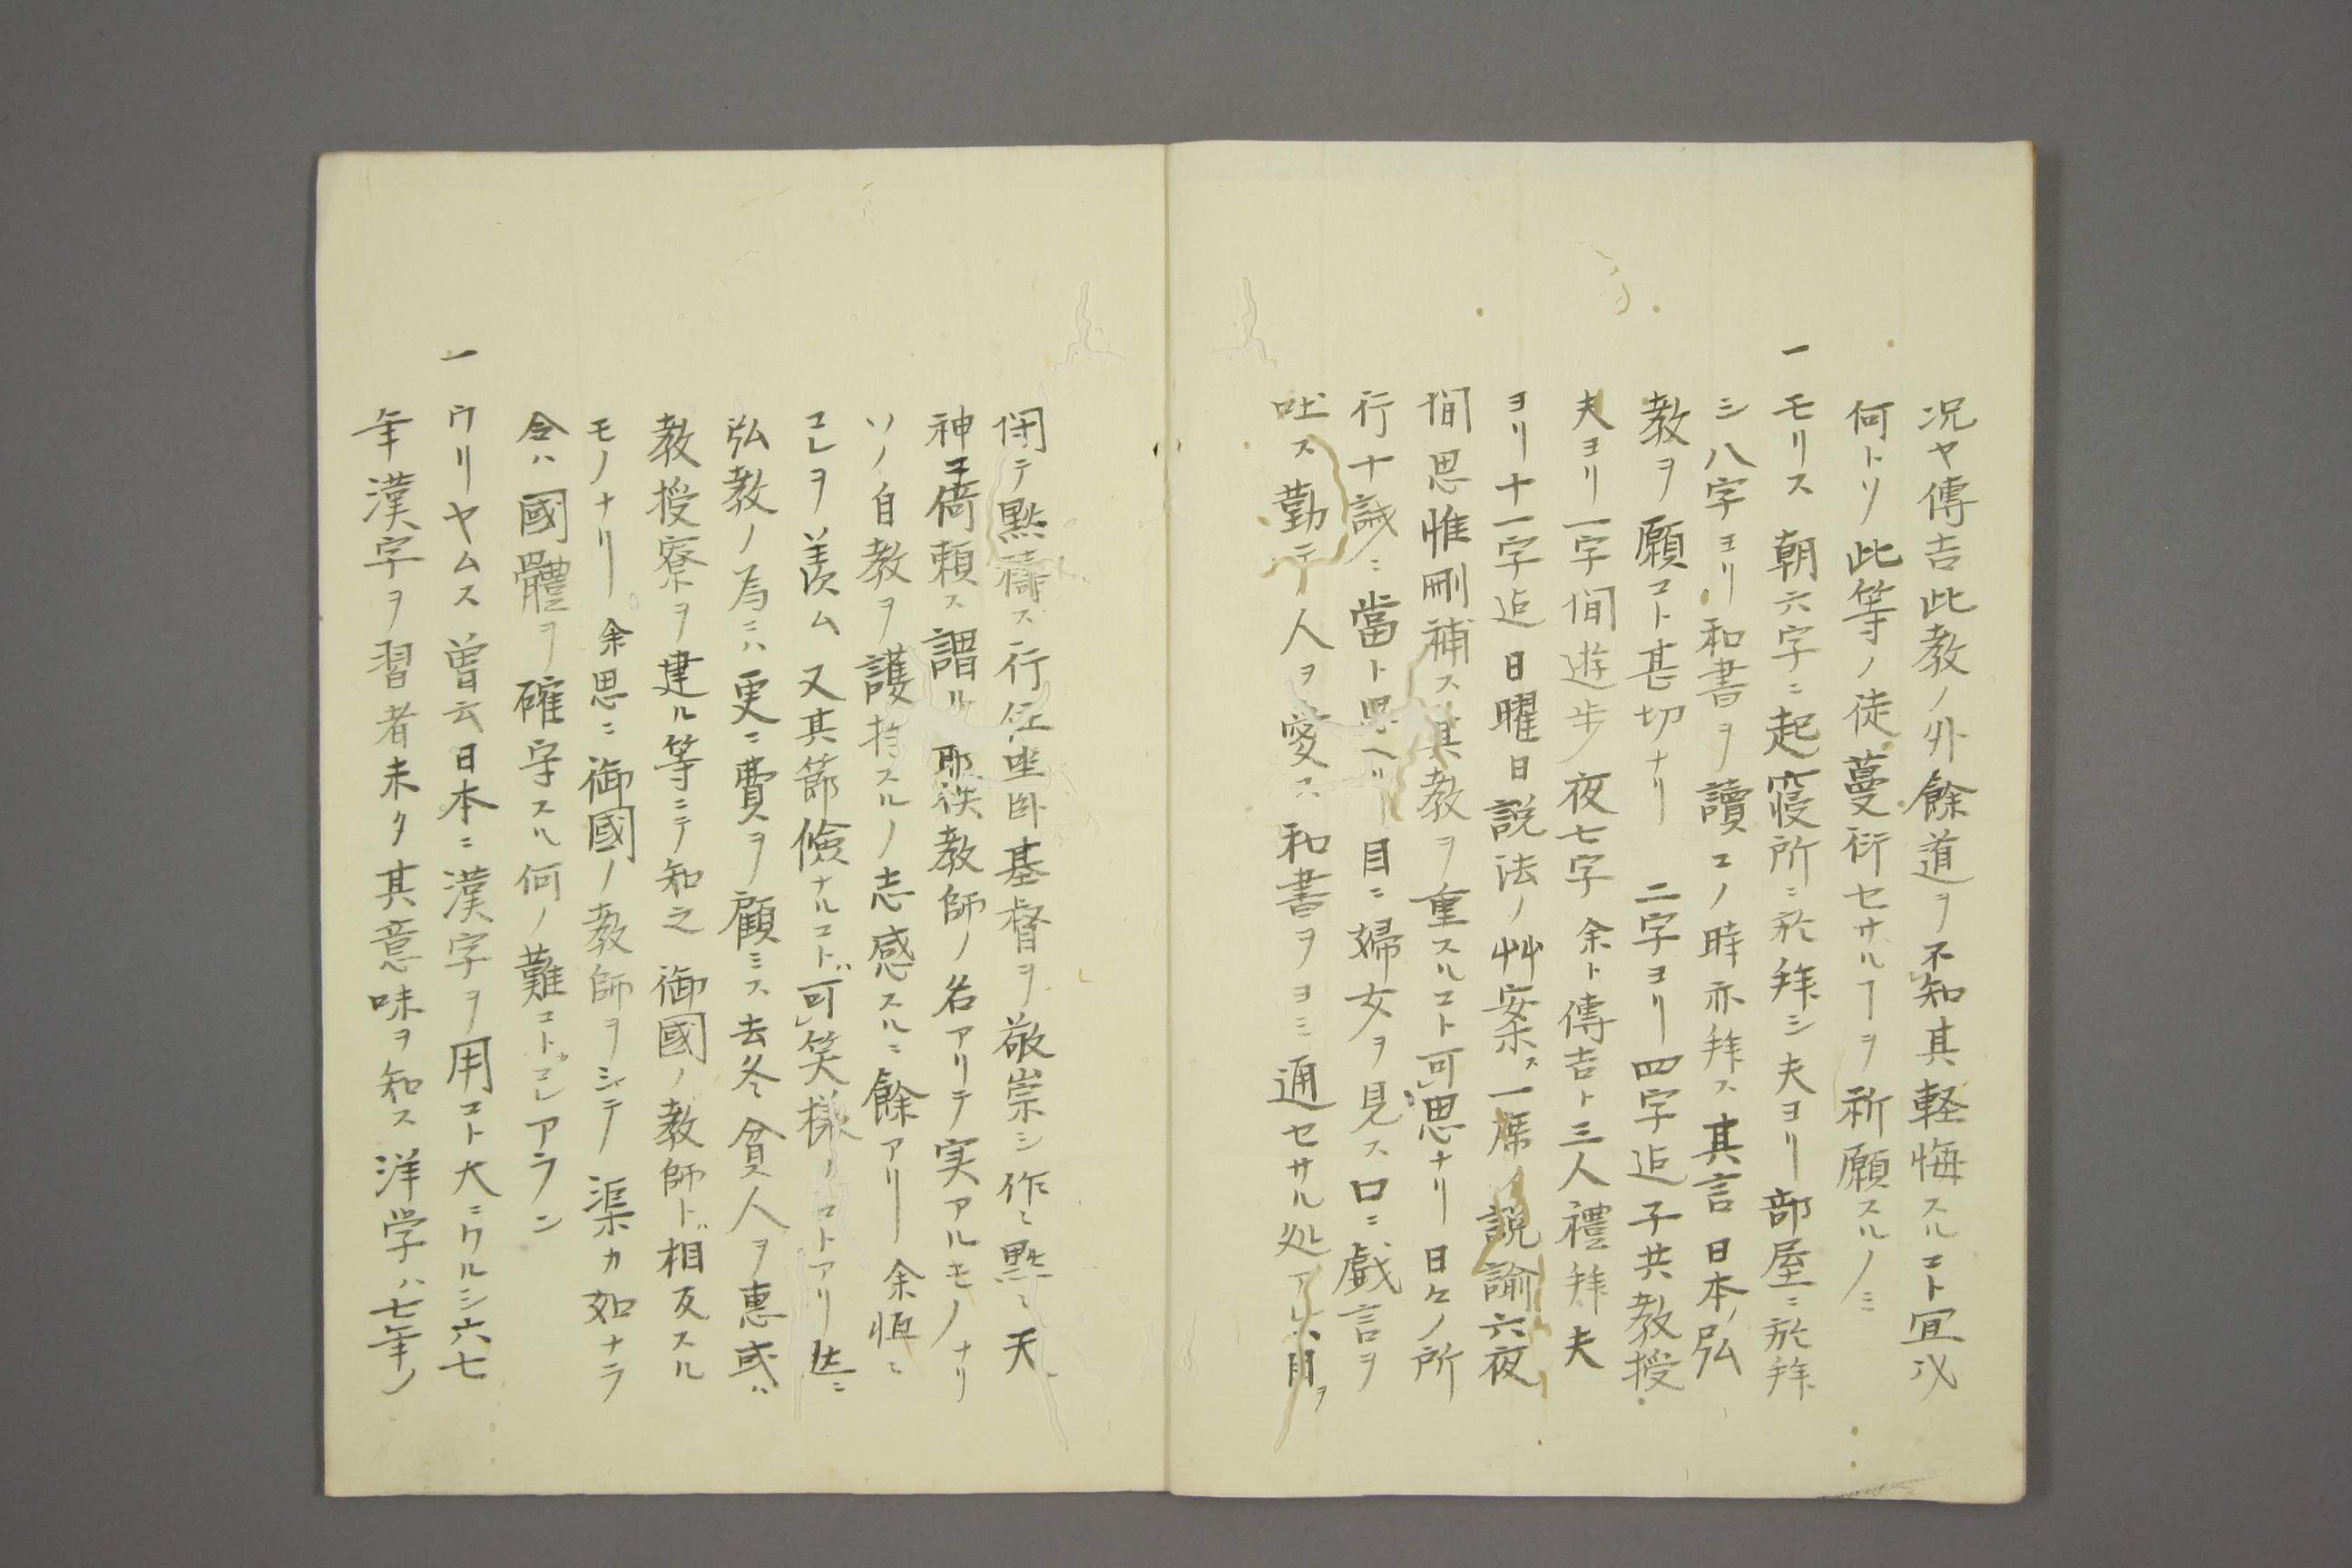 况ヤ傳吉此教ノ外餘道ヲ不知其軽侮スルコト宜
何トソ此等ノ徒蔓衍セサルヿヲ祈願スルノミ
一モリス朝六字ニ起寝所ニ於拜シ夫ヨリ部屋ニ於拜
シ八字ヨリ和書ヲ讀コノ時亦拜ス其言日本ノ弘
教ヲ願コト甚切ナリ二字ヨリ四字迠子共教授
夫ヨリ一字間遊歩夜七字余ト傳吉ト三人禮拜夫
ヨリ十一字迠日曜日説法ノ艸案ス一席ノ説諭六夜
間思惟刪補ス其教ヲ重スルコト可思ナリ日々ノ所
行十誡ニ當ト思ヘリ目ニ婦女ヲ見ス口ニ戯言ヲ
吐ス勤テ人ヲ愛ス和書ヲヨミ通セサル処アレハ目ヲ
閉テ黙禱ス行住坐卧基督ヲ敬崇シ作ミ黙ミ天
神ヱ倚頼ス謂ル耶蘇教師ノ名アリテ実アルモノナリ
ソノ自教ヲ護持スルノ志感スルニ餘アリ余恒ニ
コレヲ羨ム又其節儉ナルコト可笑様ノコトアリ
弘教ノ為ニハ更ニ費ヲ顧ミス去冬貧人ヲ惠或ハ
教授寮ヲ建ル等ニテ知之御國ノ教師ト相反スル
モノナリ余思ニ御國ノ教師ヲシテ渠カ如ナラ
令ハ國體ヲ確守スル何ノ難コトカコレアラン
一ウリヤムス曽云日本ニ漢字ヲ用コト大ニワルシ六七
年漢字ヲ習者未タ其意味ヲ知ス洋学ハ七年ノ